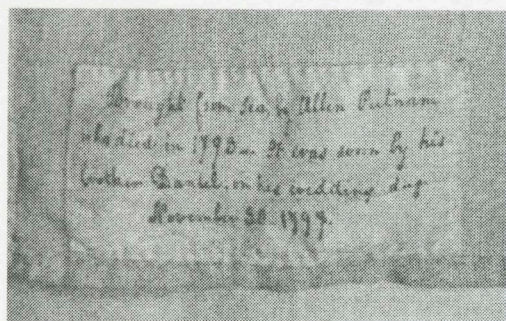 Brought from sea, by Allen Putnam
who died in 1793 - It was worn by his
brother Daniel, on his wedding day
November 30 1797.